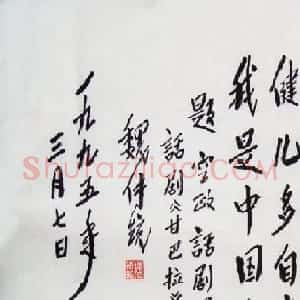 健儿多自
我是中国
题空政话剧
話剧《甘巴拉
魏传统
一九九五年
三月七日